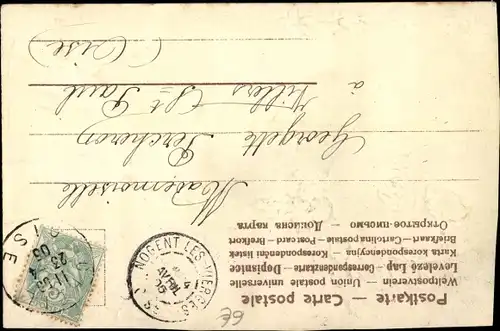 Postkarte — Carte postale
Weltpostverein — Union postale universelle
Levelező Lap — Correspondenzkarte — Dopisnice
Karta korespondencyjna — Korespondenční lístek
Briefkaart — Cartolina postale — Post-card — Brefkort
Открытое письмо — Дописна карта
NOGENT LES VIERGES
4
AVRIL
05
OISE
Mademoiselle
Georgette Percheron
à
Villers St Paul
(Oise)
6€